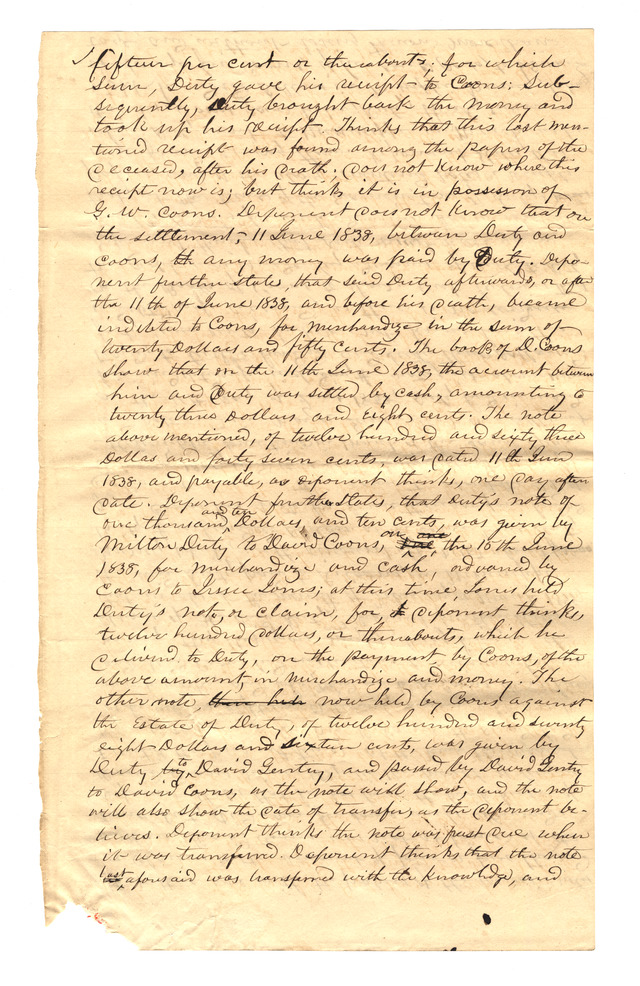 fifteen per cent or thereabouts; for which
sum, Duty gave his receipt to Coons: Sub-
sequently, Duty brought back the money and
took up his receipt. Thinks that this last men-
tioned receipt was found among the papers of the
deceased, after his death. does not know where this
receipt now is; but thinks it is in possession of
G. W. Coons. Deponent does not know that on
the settlement, 11 June 1838, between Duty and
Coons, any money was paid by Duty. Depo-
nent further states, that said Duty afterwards, or after
the 11th of June 1838, and before his death, became
indebted to Coons, for merchandize in the sum of
twenty Dollars and fifty cents. The books of D. Coons
show that on the 11th June 1838, the account between
him and Duty was settled by cash, amounting to
twenty three Dollars and eight cents. The note
above mentioned, of twelve hundred and sixty three
Dollars and forty seven cents, was dated 11th June
1838, and payable, as deponent thinks, one day after
date. Deponent further states, that Duty's note of
one thousand and ten Dollars, and ten cents, was given by
Milton Duty to David Coons, on the 15th June
1838, for merchandize and cash, advanced by
Coons to Jesse Jones; at this time, Jones held
Duty's note, or claim, for deponent thinks,
twelve hundred dollars, or thereabouts, which he
delivered to Duty, on the payment by Coons, of the
above amount, in merchandize and money. The
other note, now held by Coons against
the Estate of Duty, of twelve hundred and seventy
eight Dollars and sixteen cents, was given by
Duty to David Gentry, and passed by David Gentry
to David Coons, as the note will show, and the note
will also show the date of transfer, as the deponent be-
lieves. Deponent thinks the note was past due when
it was transferred. Deponent thinks that the note
last aforesaid was transferred with the knowledge, and